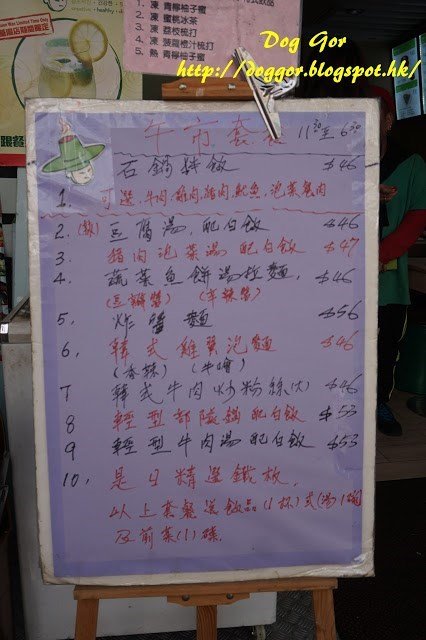 Dog Gor
http://doggor.blogspot.hk/
1. 凍 青檸柚子蜜
2. 凍 蜜桃冰茶
3. 凍 荔枝梳打
4. 凍 菠蘿橙汁梳打
5. 熱 青檸柚子蜜
跟餐
午市套餐 11 30 至 6 30
石鍋拌飯 $46
1. 可選:牛肉,雞肉,豬肉,魷魚,泡菜豬肉
2. (熱) 豆腐湯,配白飯 $46
3. 豬肉泡菜湯 配白飯 $47
4. 蔬菜魚餅湯拉麵, $46
(豆瓣醬) (辛辣醬)
5. 炸醬麵 $56
6. 韓式雞翼泡麵 $46
(香辣) (牛噲)
7 韓式牛肉炒粉絲(大) $46
8 輕型部隊鍋配白飯 $53
9 輕型牛肉湯配白飯 $53
10. 是日精選鐵板,
以上套餐送飲品(1杯)或(湯1碗)
及前菜(1)碟.